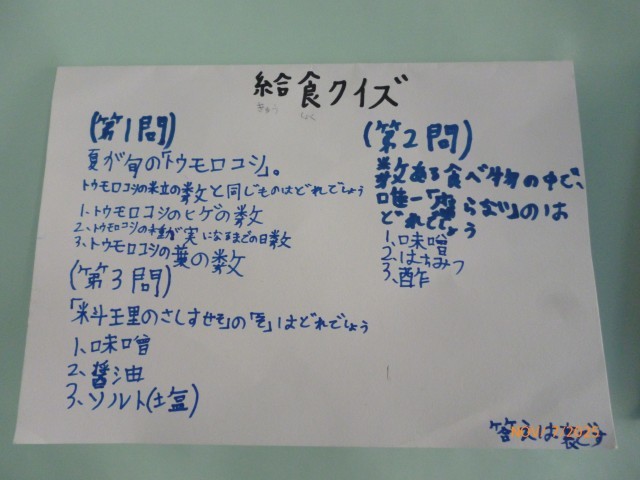 給食クイズ
きゅう しょく
(第1問)
夏が旬の「トウモロコシ」。
トウモロコシの粒の数と同じものはどれでしょう
1、トウモロコシのヒゲの数
2、トウモロコシの種が実になるまでの日数
3、トウモロコシの葉の数
(第2問)
数ある食べ物の中で、
唯一「腐らない」のは
どれでしょう
1、味噌
2、はちみつ
3、酢
(第3問)
「料理のさしすせそ」の「そ」はどれでしょう
1、味噌
2、醤油
3、ソルト(塩)
答えは裏です